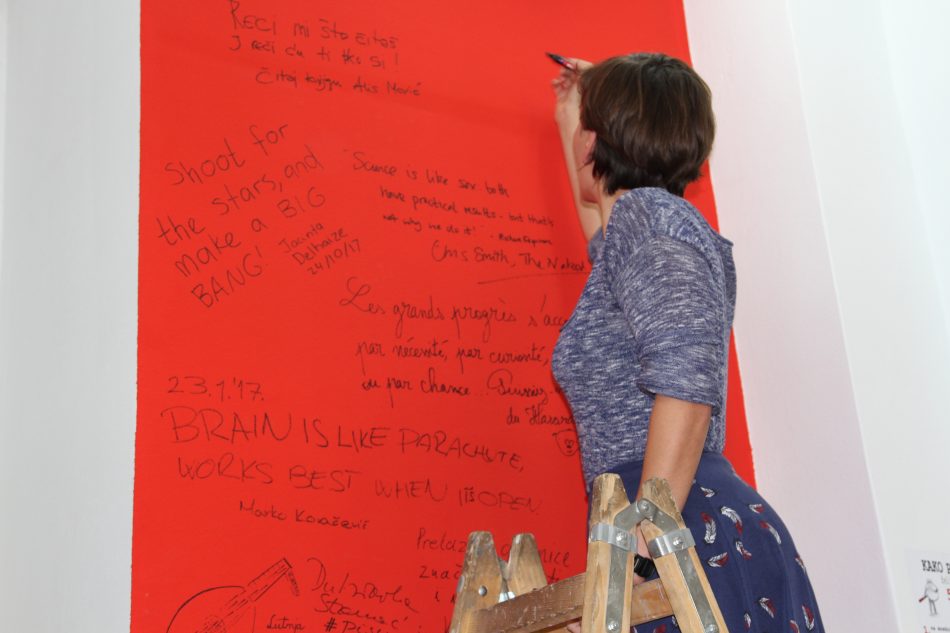 RECI MI ŠTO ČITAŠ
I reći ću ti tko si!
Čitaj knjigu Alis Marić
Shoot for
the stars, and
make a BIG
BANG!
Jacinta
Delhaize
24/10/17
"Science is like sex: both
have practical results - but that's
not why we do it!" - Richard Feynman
Chris Smith, The Naked
Les grands progrès s'acc
par nécessité, par curiosité,
ou par chance...
du Hasard
23.1.'17.
BRAIN IS LIKE PARACHUTE,
WORKS BEST WHEN IS OPEN.
Marko Košiček
znač
Dubravka
#
Lutnja
KAKO